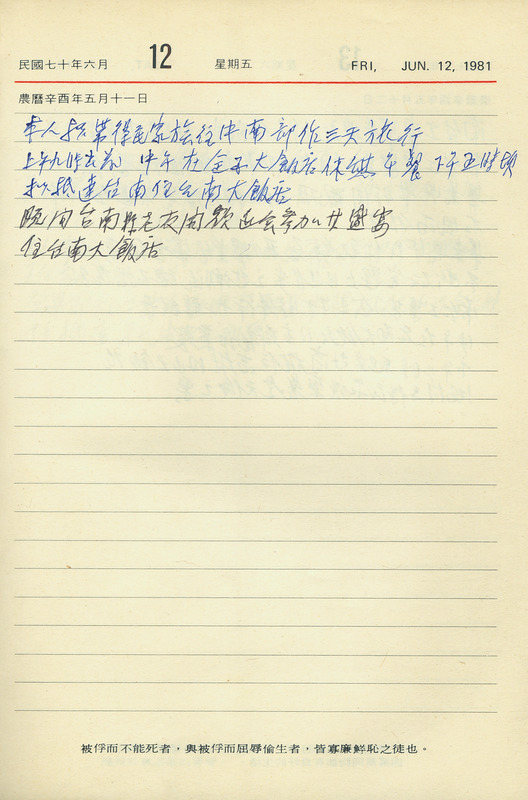 民國七十年六月 12 星期五 FRI, JUN. 12, 1981
農曆辛酉年五月十一日
本人招帶得民家族往中南部作三天旅行
上午九時出發 中午在 大飯店休憩午餐 下午五時頃
抵達台南住台南大飯店
晚間台南縣老友周 參加其盛宴
住台南大飯店
被俘而不能死者，與被俘而屈辱偷生者，皆寡廉鮮恥之徒也。